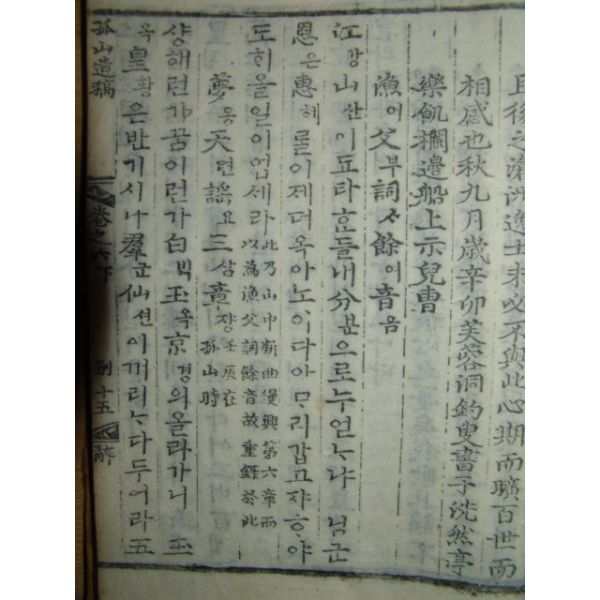 且後之滄洲逸士未必不與此心期而曠百世而
相感也秋九月歲辛卯芙蓉洞釣叟書于洗然亭
樂飢欄邊船上示兒曹
漁어父부詞ᄉᆞ餘여音음
江강山산이됴타ᄒᆞᆫᄃᆞᆯ내分분으로누얻ᄂᆞ냐님군
恩은惠혜ᄅᆞᆯ이제더옥아노이다아ᄆᆞ리갑고쟈ᄒᆞ야
도ᄒᆡ올일이업세라此乃山中新曲漫興第六章而
以為漁父詞餘音故重錄於此
夢몽天텬謠요三삼章쟝壬辰在
孤山時
샹해런가ᄭᅮᆷ이런가白ᄇᆡᆨ玉옥京경의올라가니玉
옥皇황은반기시나羣군仙션이ᄭᅥ리ᄂᆞ다두어라五
孤山遺稿 卷之六下 別 十五